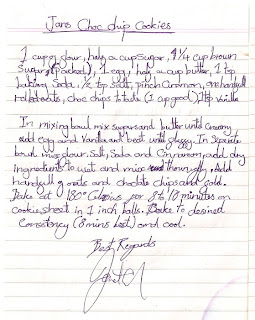 Jans Choc chip Cookies
1 cup of flour, half a cup Sugar, 1/4 cup brown
Sugar (Packed), 1 egg, half a cup butter, 1 tsp
baking Soda, 1/2 tsp Salt, pinch Cinnamon, one handfull
rolled oats, choc chips to taste (1 cup good) 1 tsp Vanilla
In mixing bowl mix sugars and butter until Creamy
add egg and Vanilla and beat until fluffy. In Seperate
bowl mix flour, Salt, Soda and Cinnamon, add dry
ingredients to wet and mix thouroughly, add
handfull of oats and choclate chips and fold.
Bake at 180° Celsius for 8 to 10 minutes on
cookie sheet in 1 inch balls. Bake to desired
Consistency (8 mins best) and cool.
Best Regards